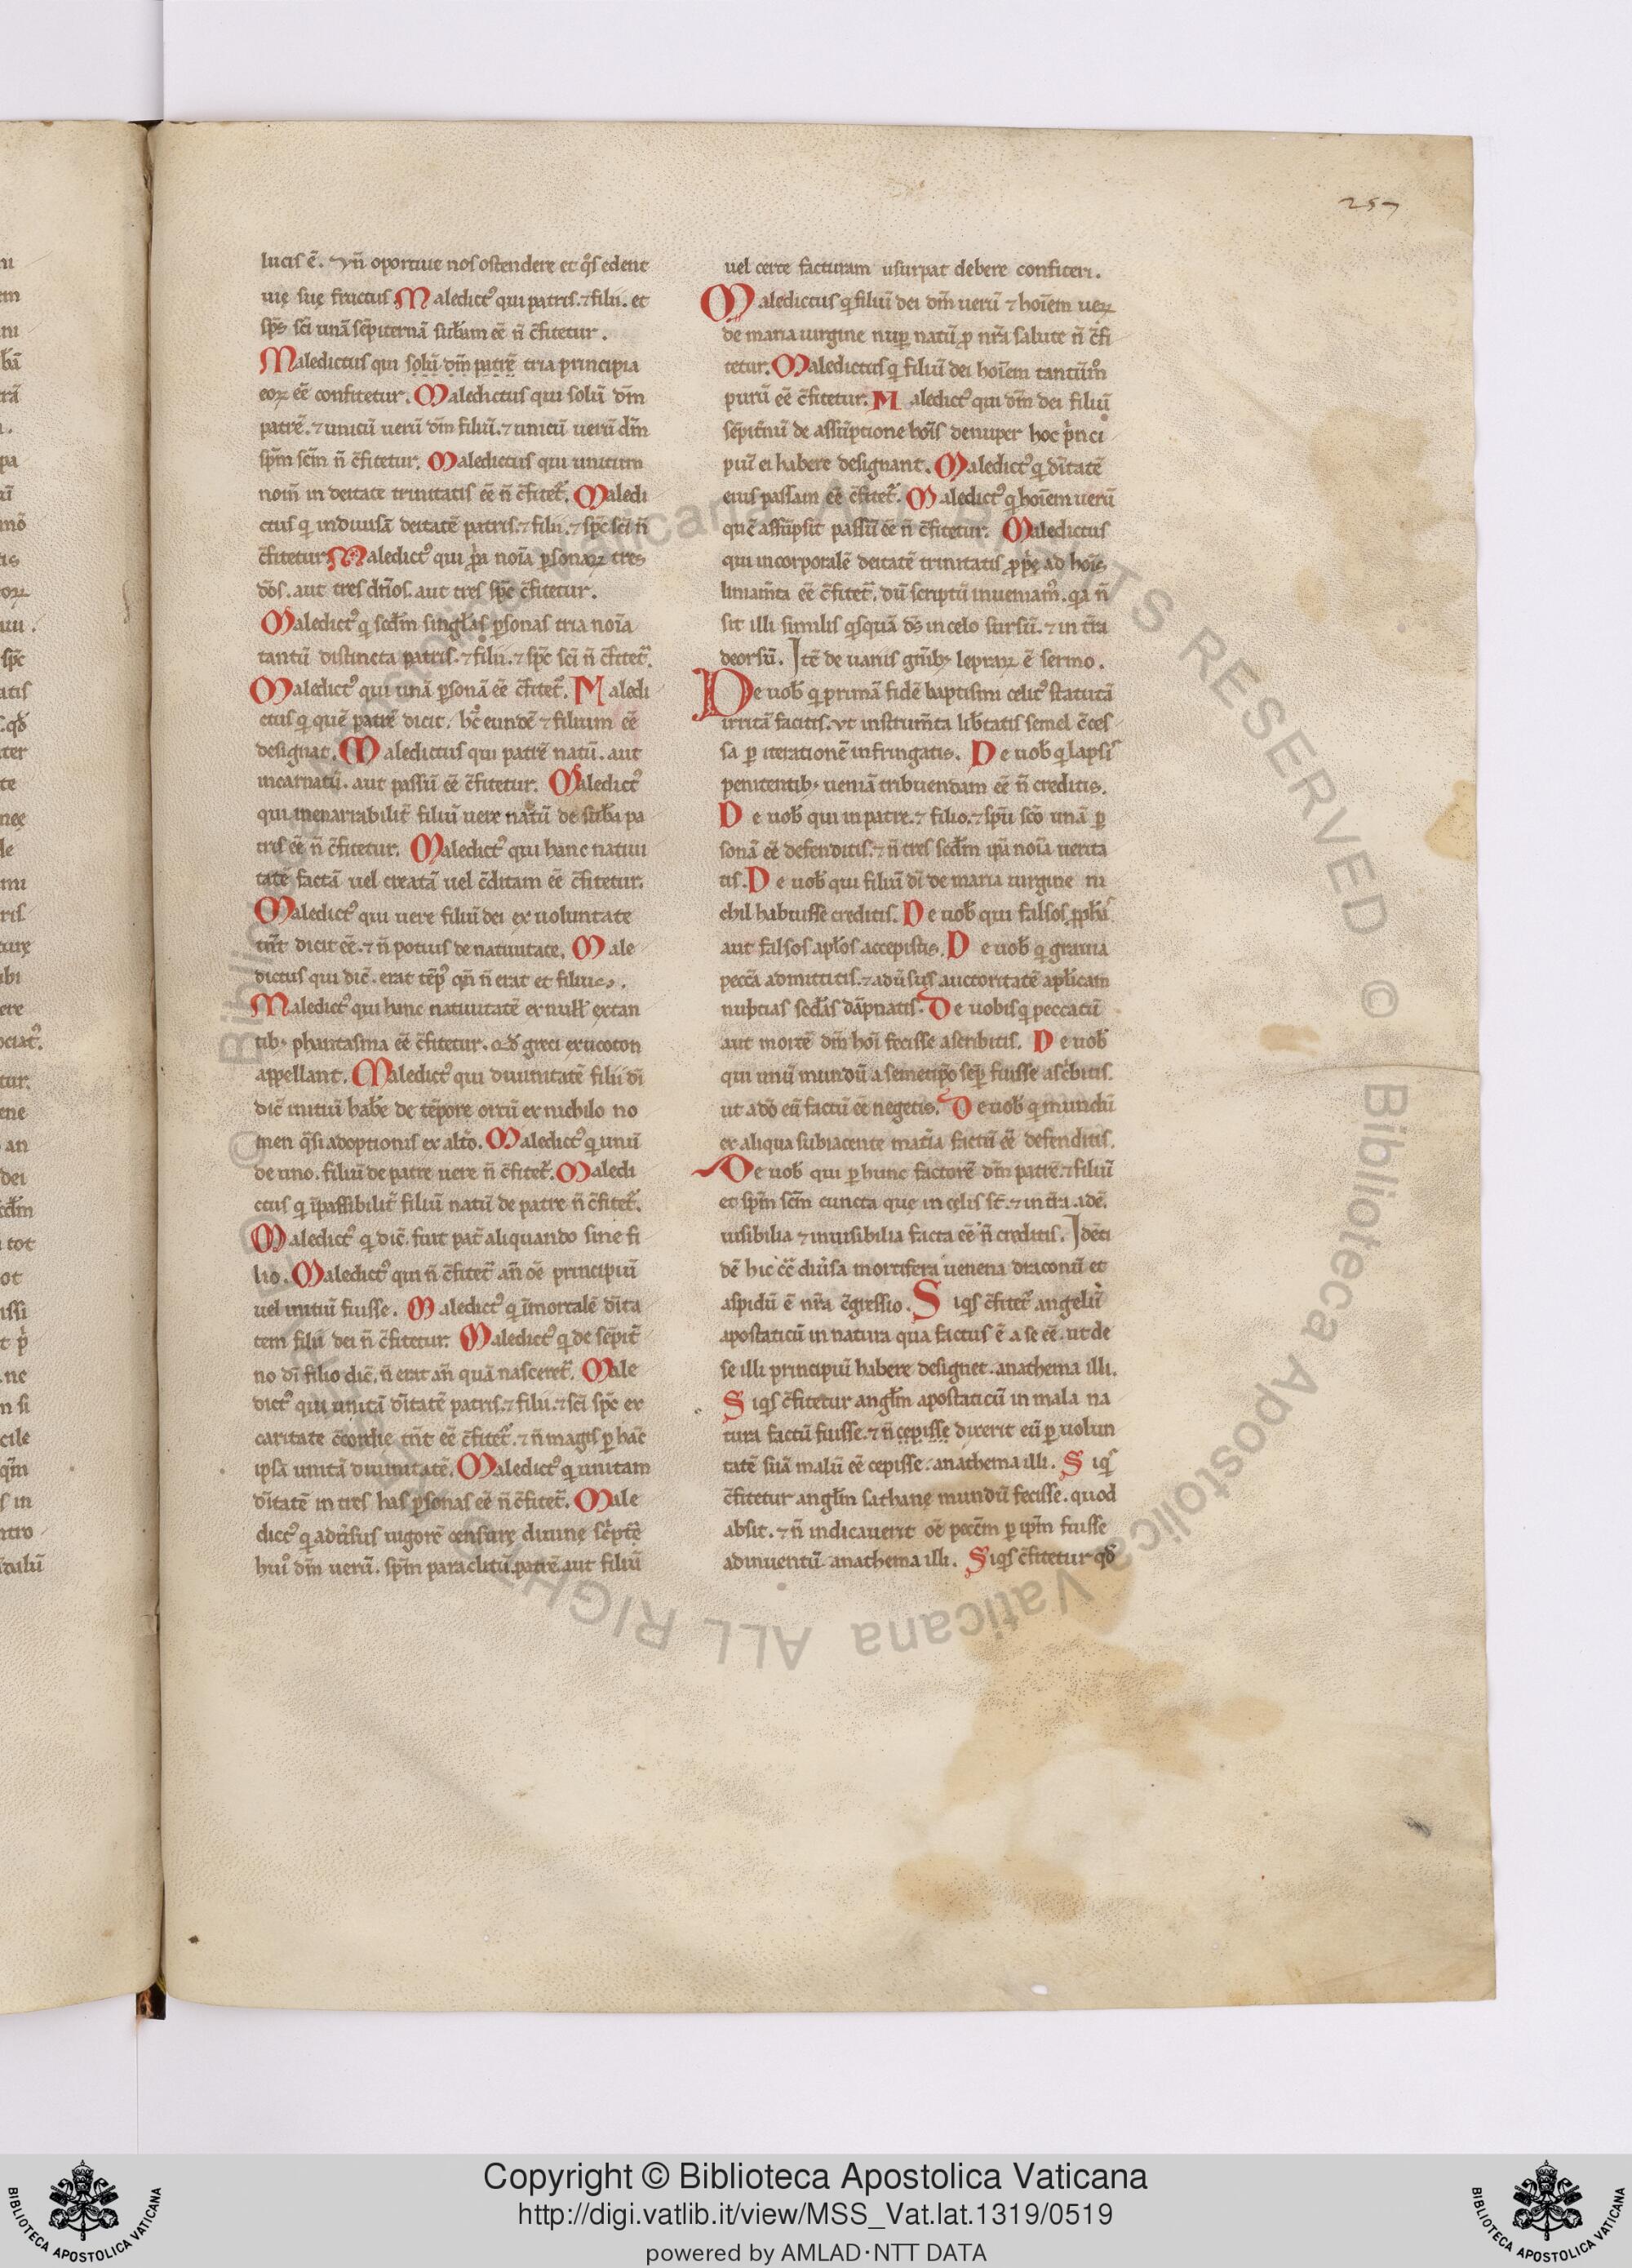 257
lucis ē. Vn̄ oportue nos ostendere et q̊s edent
uię suę fructus Maledict᷒ qui patris. ⁊ filii. et
sp̄s sc̄i unā sēpiternā sub̄am eē n̄ c̄fitetur.
Maledictus qui solū dm̄ patrē tria principia
eoꝝ eē confitetur. Maledictus qui solū dm̄
patrē. ⁊ unicū uerū dm̄ filiū. ⁊ unicū uerū dm̄
sp̄m sc̄m n̄ c̄fitetur. Maledictus qui unitum
nom̄ in deitate trinitatis eē n̄ c̄fitet᷑. Maledi
ctus q̄ indiuisā deitatē patris. ⁊ filii. ⁊ sp̄c sc̄i n̄
c̄fitetur Maledict᷒ qui noīa ꝑsonaꝝ tres
dōs. aut tres dn̄os. aut tres sp̄c c̄fitetur.
Maledict᷒ q̄ sc̄dm singl̄as ꝑsonas tria noīa
tantū distincta patris. ⁊ filii. ⁊ sp̄c sc̄i n̄ c̄fitet᷑.
Maledict᷒ qui unā ꝑsonā eē c̄fitet᷑. Maledi
ctus q̄ quē patrē dicit. hc̄ eundē ⁊ filium eē
designat. Maledictus qui patrē natū. aut
incarnatū. aut passū eē c̄fitetur. Maledict᷒
qui inenarrabilit᷑ filiū uere natū de sub̄a pa
tris eē n̄ c̄fitetur. Maledict᷒ qui hanc natiui
tatē factā uel creatā uel c̄ditam eē c̄fitetur.
Maledict᷒ qui uere filiū dei ex uoluntate
tn̄t dicit eē. ⁊ n̄ potius de natiuitate. Male
dictus qui dic̄. erat tēp᷒ qn̄ n̄ erat et filius.
Maledict᷒ qui hanc natiuitatē ex null᷒ extan
tib; phantasma eē c̄fitetur. qd̄ greci exucoton
appellant. Maledict᷒ qui diuinitatē filii di
dic̄ initiū hab̄e de tēpore ortū ex nichilo no
men q̄si adoptionis ex alto. Maledict᷒ q̄ unū
de uno. filiū de patre uere n̄ c̄fitet᷑. Maledi
ctus q̄ īpassibilit᷑ filiū natū de patre n̄ c̄fitet᷑.
Maledict᷒ q̄ dic̄. fuit pat᷑ aliquando sine fi
lio. Maledict᷒ qui n̄ c̄fitet᷑ an̄ oē principiū
uel initiū fuisse. Maledict᷒ q̄ īmortalē dīta
tem filii dei n̄ c̄fitetur. Maledict᷒ q̄ de sēpit᷑
no dī filio dic̄. n̄ erat an̄ quā nasceret᷑. Male
dict᷒ qui unitā dītatē patris. ⁊ filii. ⁊ sc̄i sp̄c ex
caritate c̄cordie tn̄t eē c̄fitet᷑. ⁊ n̄ magis ꝑ hāc
ipsā unitā diuinitatē. Maledict᷒ q̄ unitam
dītatē in tres has ꝑsonas eē n̄ c̄fitet᷑. Male
dict᷒ q̄ adūsus uigorē censurę diuinę sc̄ptę
hui᷒ dm̄ uerū. sp̄m paraclitū. patrē. aut filiū
uel certe facturam usurpat debere confiteri.
Maledictus q̄ filiū dei dm̄ uerū ⁊ hoīem ueꝝ
de maria uirgine nuꝑ natū ꝓ nr̄a salute n̄ c̄fi
tetur. Maledictus q̄ filiū dei hoīem tantūm᷒
purū eē c̄fitetur. Maledict᷒ qui dm̄ dei filiū
sēpit᷑nū de assūptione hoīs denuper hoc p̄nci
piū ei habere designant. Maledict᷒ q̄ dītatē
eius passam eē c̄fitet᷑. Maledict᷒ q̄ hoīem uerū
quē assūpsit passū eē n̄ c̄fitetur. Maledictus
qui incorporalē deitatē trinitatis ad hoīs
liniam̄ta eē c̄fitet᷑. dū scriptū inueniam᷒. q̄a n̄
sit illi similis q̄squā ds̄ in celo sursū. ⁊ in tr̄a
deorsū. Itē de uariis gn̄ib; lepraꝝ ē sermo.
De uob᷒ q̄ primā fidē baptismi celit᷒ statutā
irritā facitis. ut instrum̄ta lib̄tatis semel c̄ces
sa ꝑ iterationē infringatis. De uob᷒ q̄ lapsis
penitentib; ueniā tribuendam eē n̄ creditis.
De uob᷒ qui in patre. ⁊ filio. ⁊ sp̄u sc̄o unā ꝑ
sonā eē defenditis. ⁊ n̄ tres sc̄dm ip̄ā noīa uerita
tis. De uob᷒ qui filiū dī de maria uirgine ni
chil habuisse creditis. De uob᷒ qui falsos ꝓph̄as
aut falsos ap̄los accepistis. De uob᷒ q̄ grauia
peccā admittitis. ⁊ adūsus auctoritatē ap̄licam
nuptias sc̄das dāpnatis. De uobis q̄ peccatū
aut mortē dm̄ hoī fecisse ascribitis. De uob᷒
qui unū mundū a semetip̄o sēp fuisse asc̄bitis.
ut a dō eū factū eē negetis. De uob᷒ q̄ mundū
ex aliqua subiacente mat᷑ia factū eē defenditis.
De uob᷒ qui ꝑ hunc factorē dm̄ patrē. ⁊ filiū
et sp̄m sc̄m cuncta que in cęlis st̄. ⁊ in tr̄a. idē.
uisibilia ⁊ inuisibilia facta eē n̄ creditis. Idēti
dē hic eē diūsa mortifera uenena draconū et
aspidū ē nr̄a c̄gressio. Siq̄s c̄fitet᷑ angelū
apostaticū in natura qua factus ē a se eē. ut de
se illi principiū habere designet. anathema illi.
Siq̄s c̄fitetur angl̄m apostaticū in mala na
tura factū fuisse. ⁊ n̄ cepisse dixerit eū ꝑ uolun
tatē suā malū eē cepisse. anathema illi. Siq̄s
c̄fitetur angl̄m sathanę mundū fecisse. quod
absit. ⁊ n̄ indicauerit oē pecc̄m ꝑ ip̄m fuisse
adinuentū. anathema illi. Siq̄s c̄fitetur qd̄
Copyright © Biblioteca Apostolica Vaticana
http://digi.vatlib.it/view/MSS_Vat.lat.1319/0519
powered by AMLAD·NTT DATA